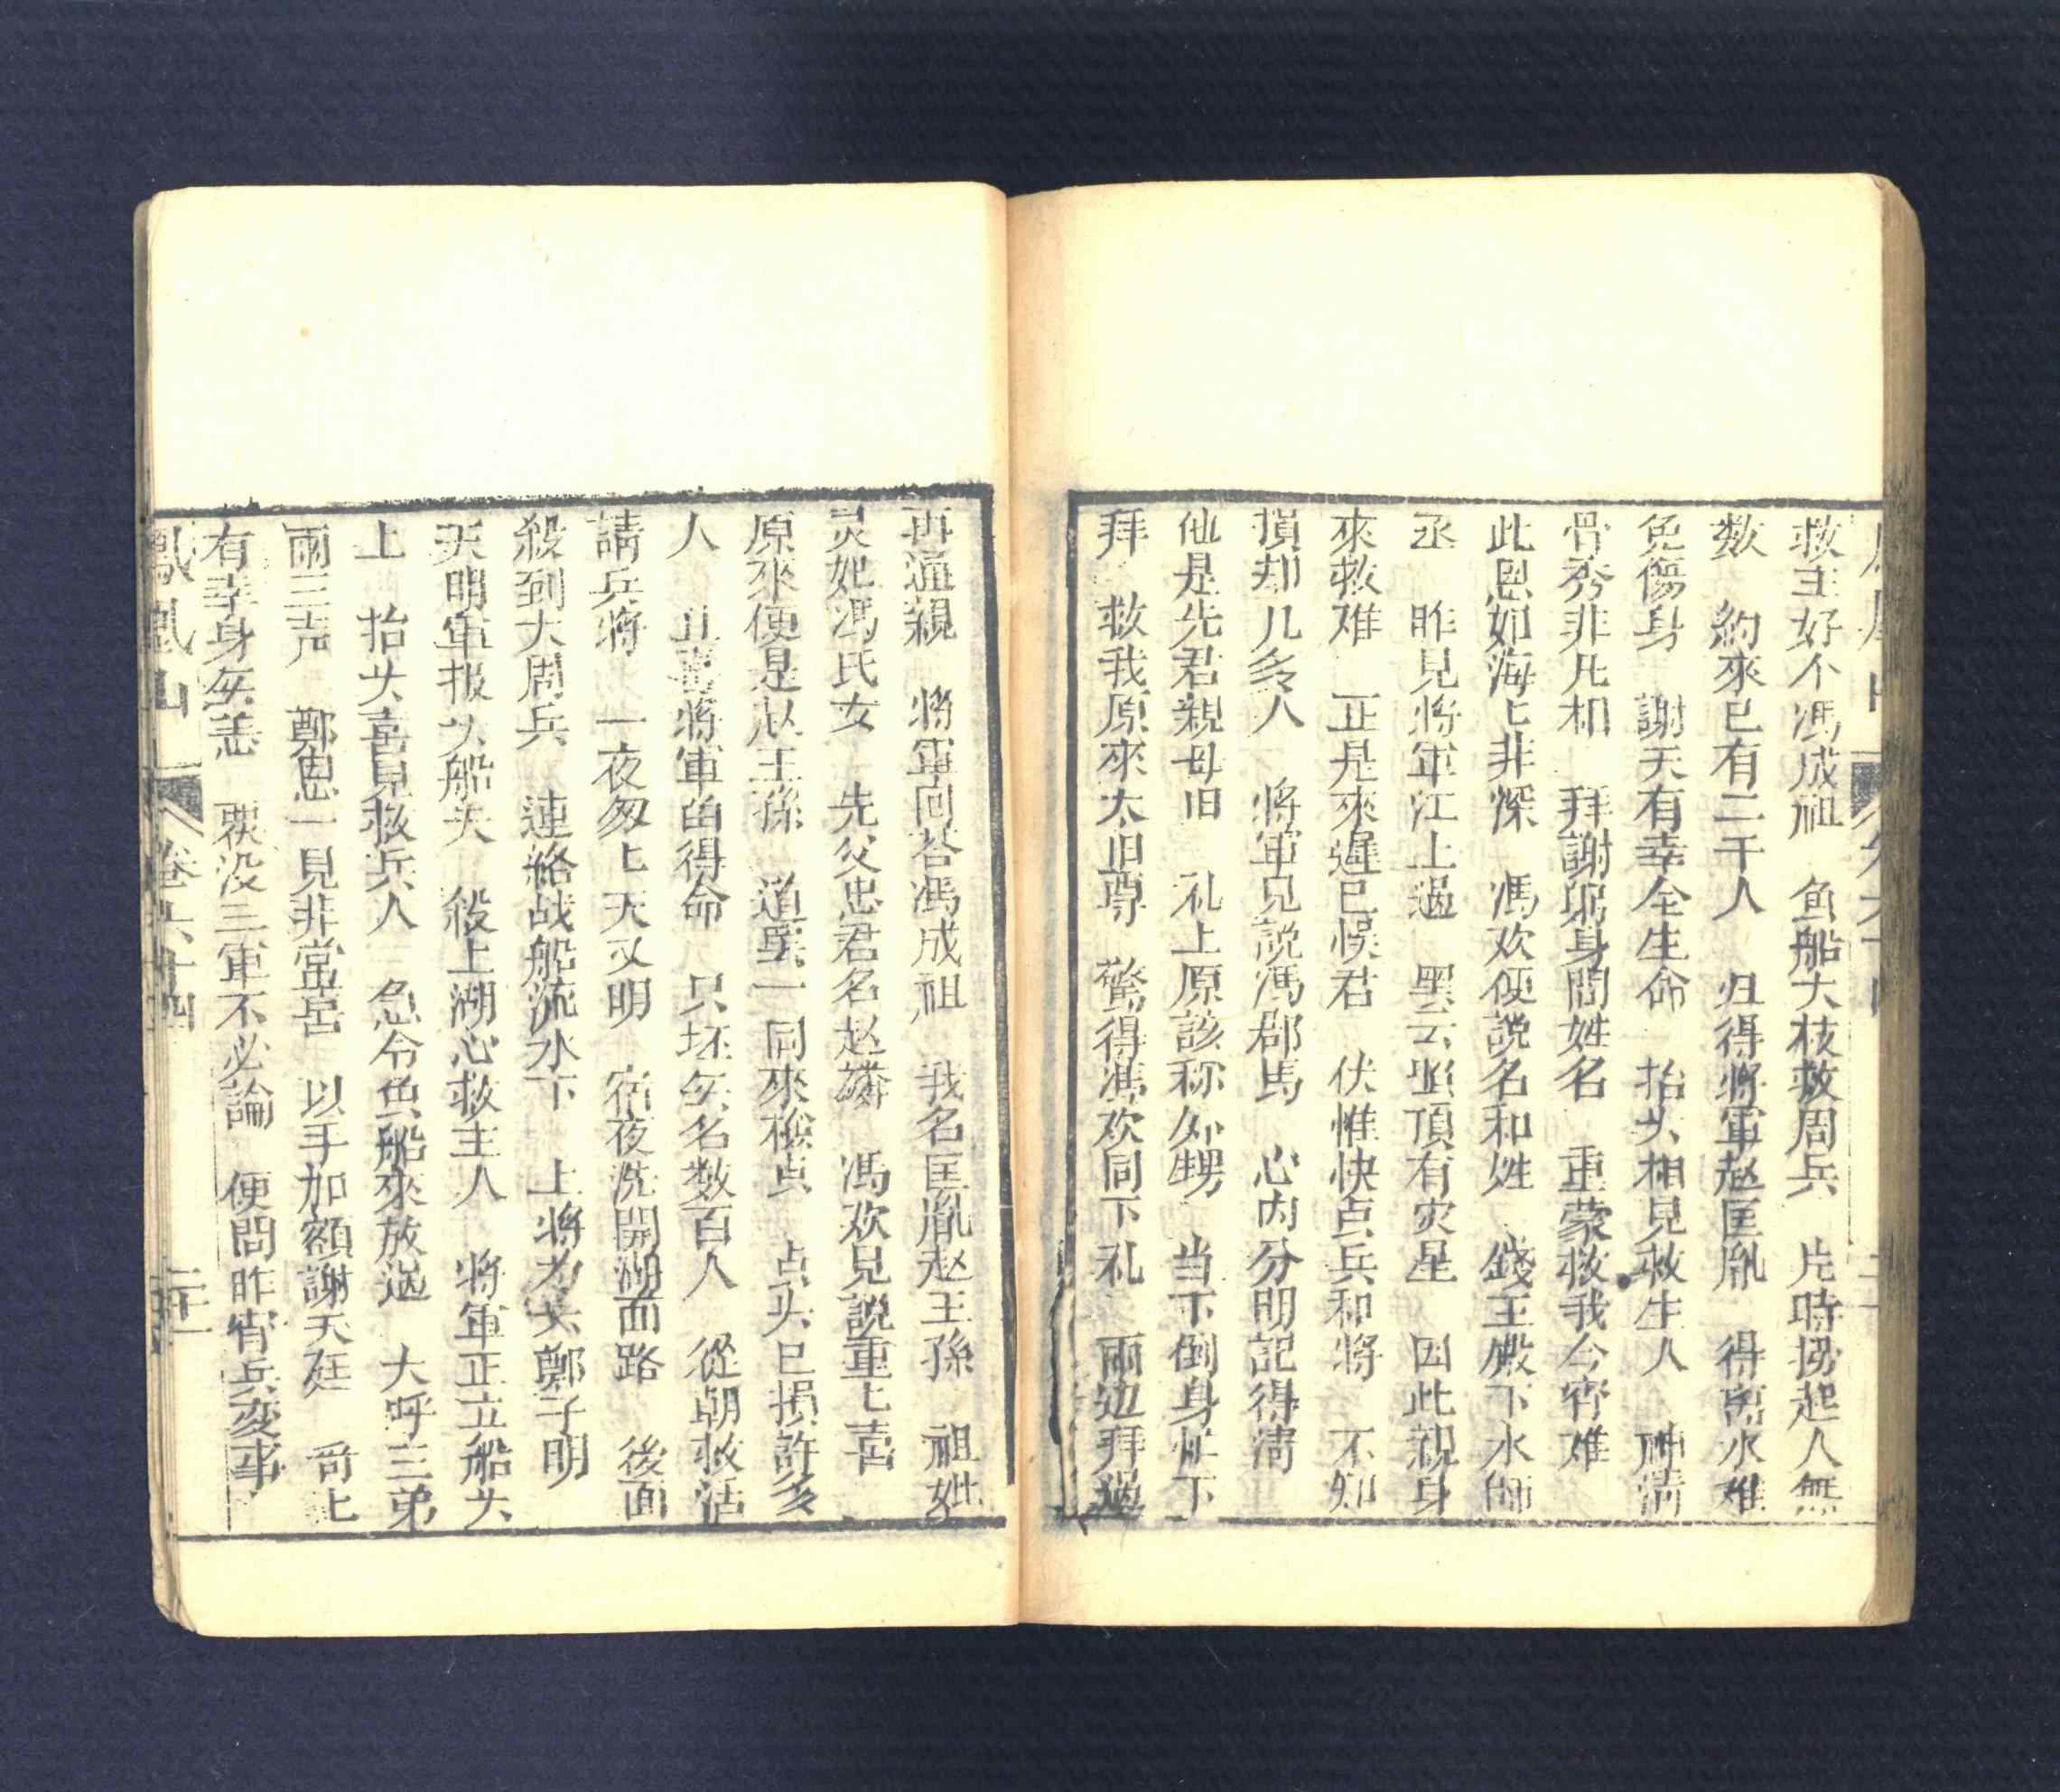 救主好个馮成祖　魚船大枝救周兵　片時捞起人無
数　約來已有二千人　归得將軍赵匡胤　得离水难
免傷身　謝天有幸全生命　抬头相見救生人　神清
骨秀非凡相　拜謝躬身問姓名　重蒙救我今宵难
此恩如海匕非深　馮欢便説名和姓　錢王殿下水師
丞　昨見將軍江上過　黑云照頂有灾星　因此親身
來救难　正是來遲已悞君　伏惟快点兵和將　不知
損却几多人　將軍見説馮郡馬　心内分明記得清
他是先君親母旧　礼上原該称如甥　当下倒身忙下
拜　救我原來太旧尊　驚得馮欢同下礼　兩边拜過
再通親　將軍回荅馮成祖　我名匡胤赵王孫　祖妣
灵妃馮氏女　先父忠君名赵　馮欢見説重匕喜
原來便是赵王孫　道罢一同來檢点　点头已損許多
人　且喜將軍由得命　只坯矣名数百人　從朝救活
請兵將　一夜匆匕天又明　宿夜洗開湖面路　後面
殺到大周兵　連絡战船流水下　上將为头鄭子明
天明軍报头船失　殺上湖心救主人　將軍正立船头
上　抬头喜見救兵人　急令魚船來放過　大呼三弟
兩三声　鄭恩一見非常喜　以手加額謝天廷　哥匕
有幸身矣恙　沒三軍不必論　便問昨宵兵变事
鳳凰山　卷六十四